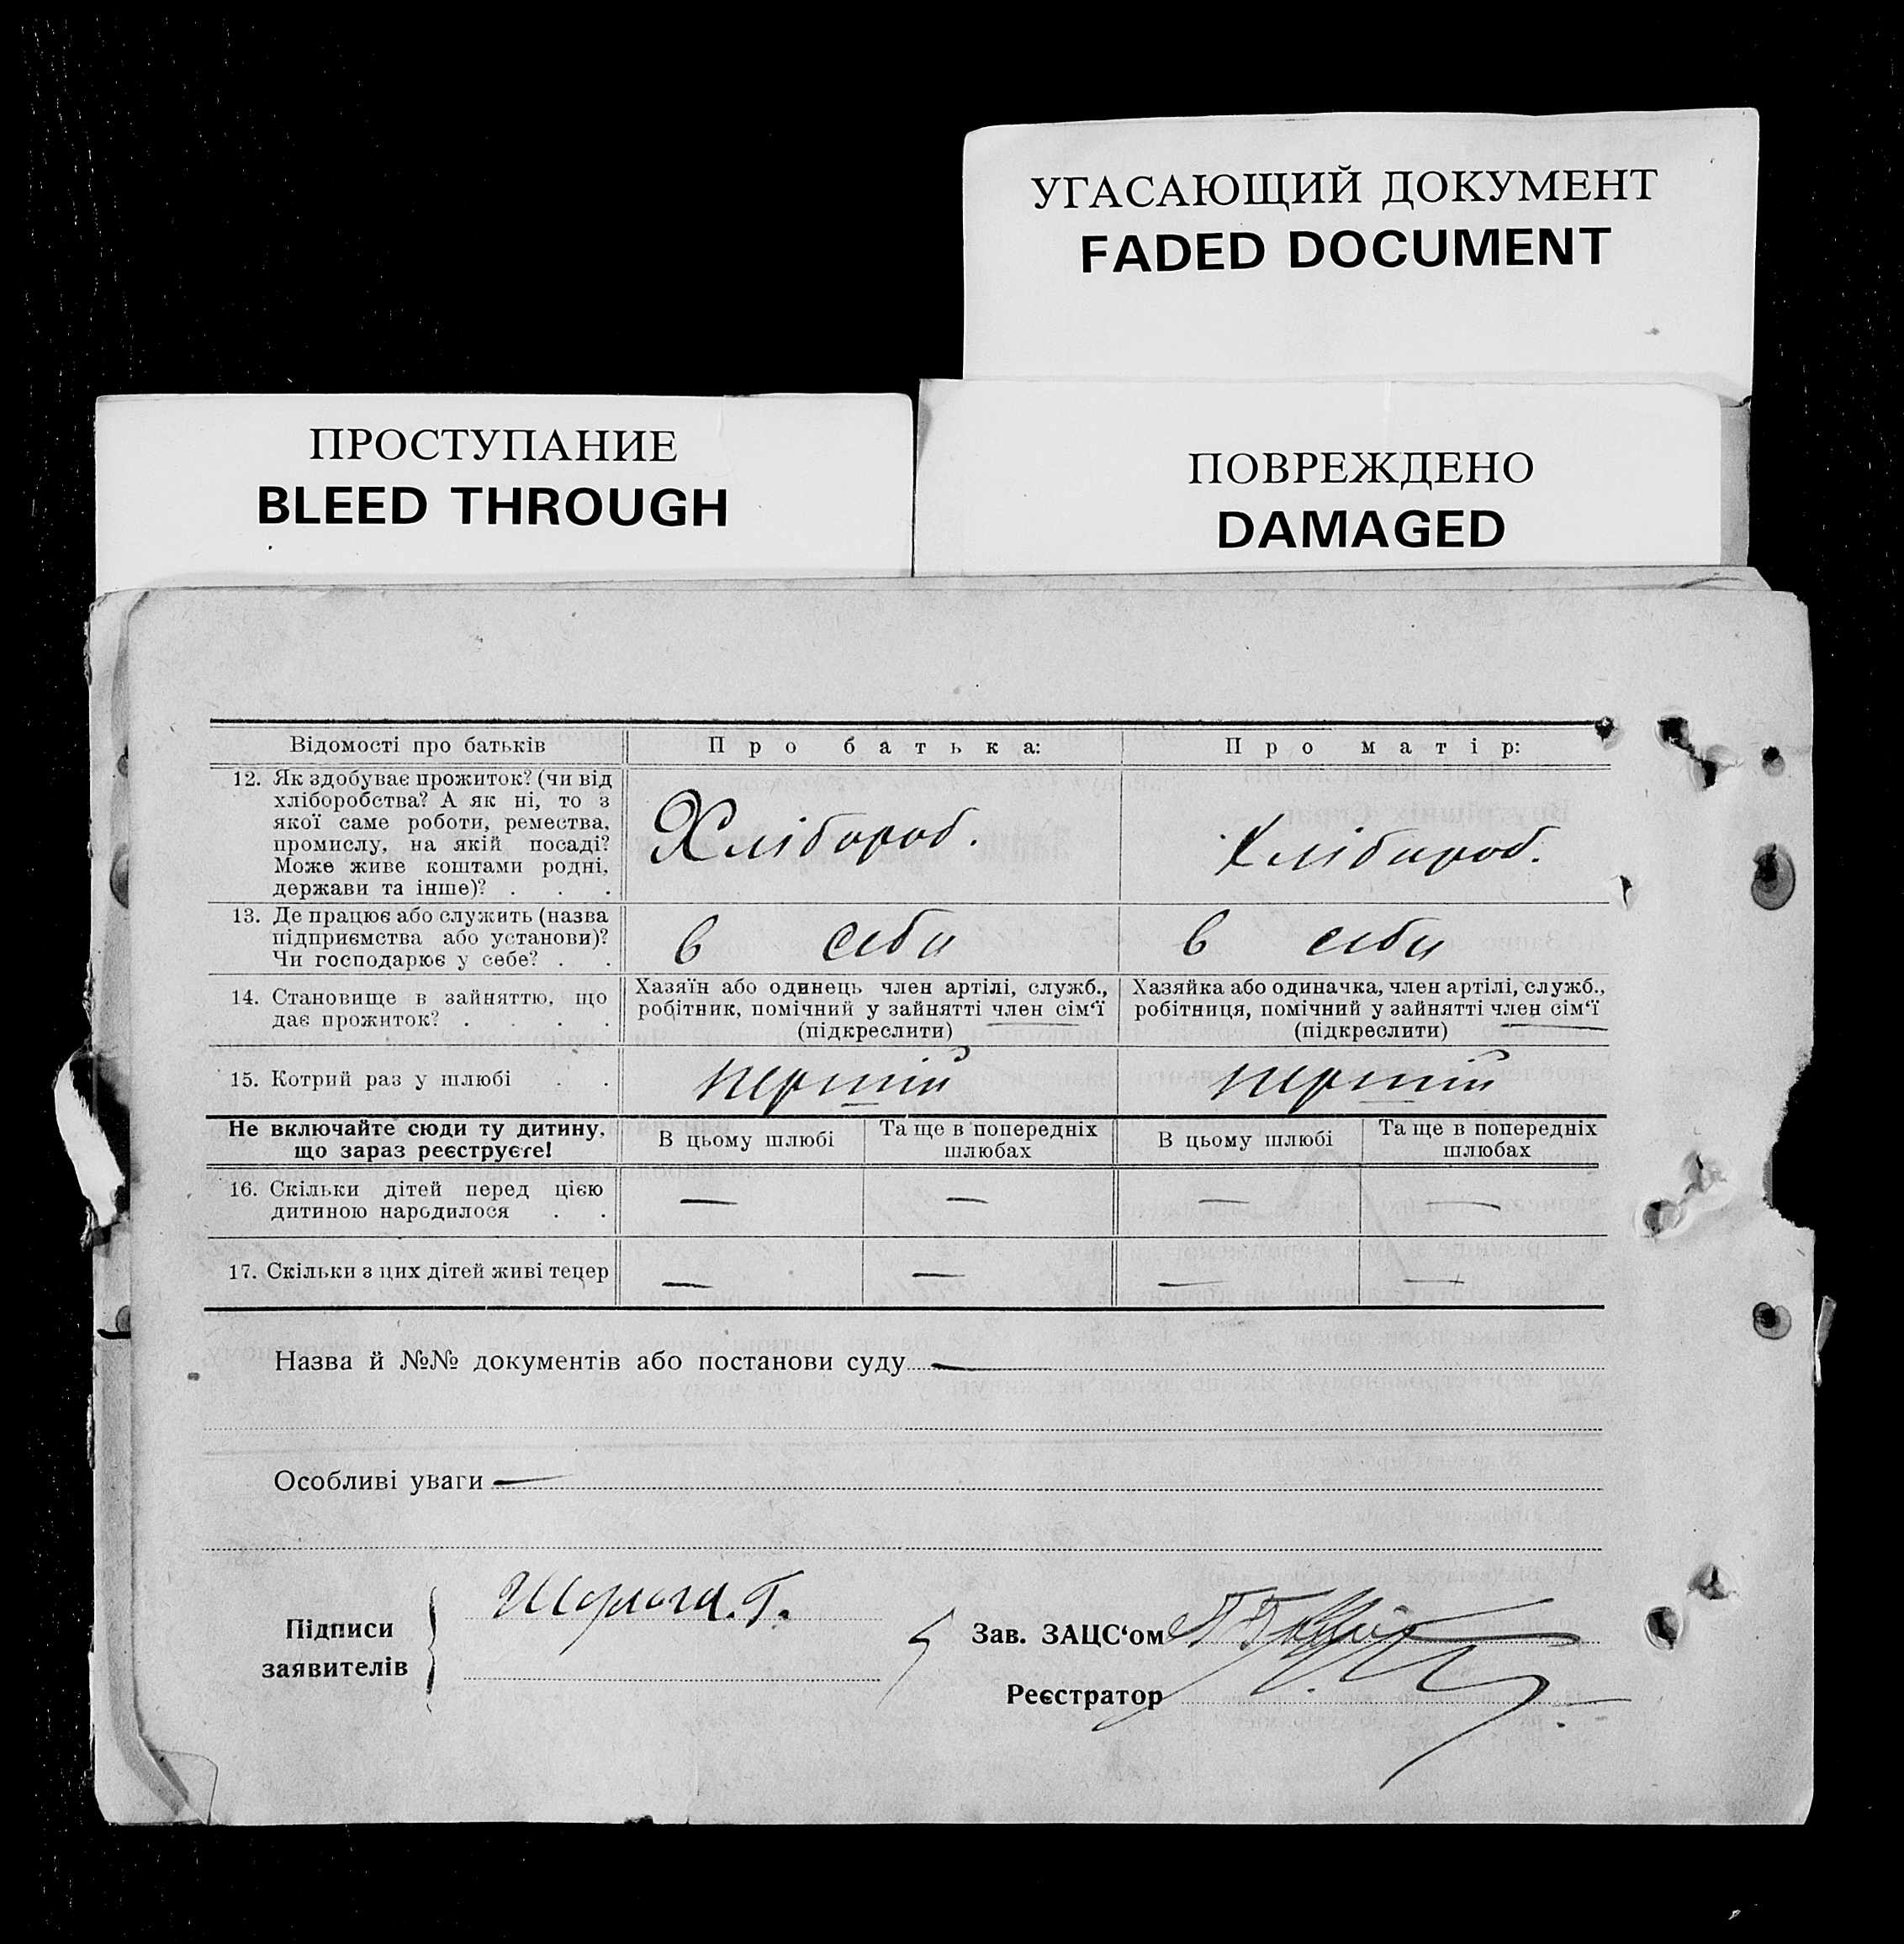 УГАСАЮЩИЙ ДОКУМЕНТ
FADED DOCUMENT
ПРОСТУПАНИЕ
BLEED THROUGH
ПОВРЕЖДЕНО
DAMAGED
Відомості про батьків
Про батька:
Про матір:
12. Як здобуває прожиток? (чи від
хліборобства? А як ні, то з
якої саме роботи, ремества,
промислу, на якій посаді?
Може живе коштами родні,
держави та інше)? . . .
Хлібороб.
Хлібороб.
13. Де працює або служить (назва
підприємства або установи)?
Чи господарює у себе? . .
в себи
в себи
14. Становище в зайняттю, що
дає прожиток? . . . .
Хазяїн або одинець член артілі, служб.,
робітник, помічний у зайнятті член сім‘ї
(підкреслити)
Хазяйка або одиначка, член артілі, служб.,
робітниця, помічний у зайнятті член сім‘ї
(підкреслити)
15. Котрий раз у шлюбі . .
першій
першій
Не включайте сюди ту дитину,
що зараз реєструєте!
В цьому шлюбі
Та ще в попередніх
шлюбах
В цьому шлюбі
Та ще в попередніх
шлюбах
16. Скільки дітей перед цією
дитиною народилося . .
— — — —
17. Скільки з цих дітей живі тепер
— — — —
Назва й №№ документів або постанови суду —
Особливі уваги —
Підписи
заявителів
Зав. ЗАЦС‘ом
Реєстратор